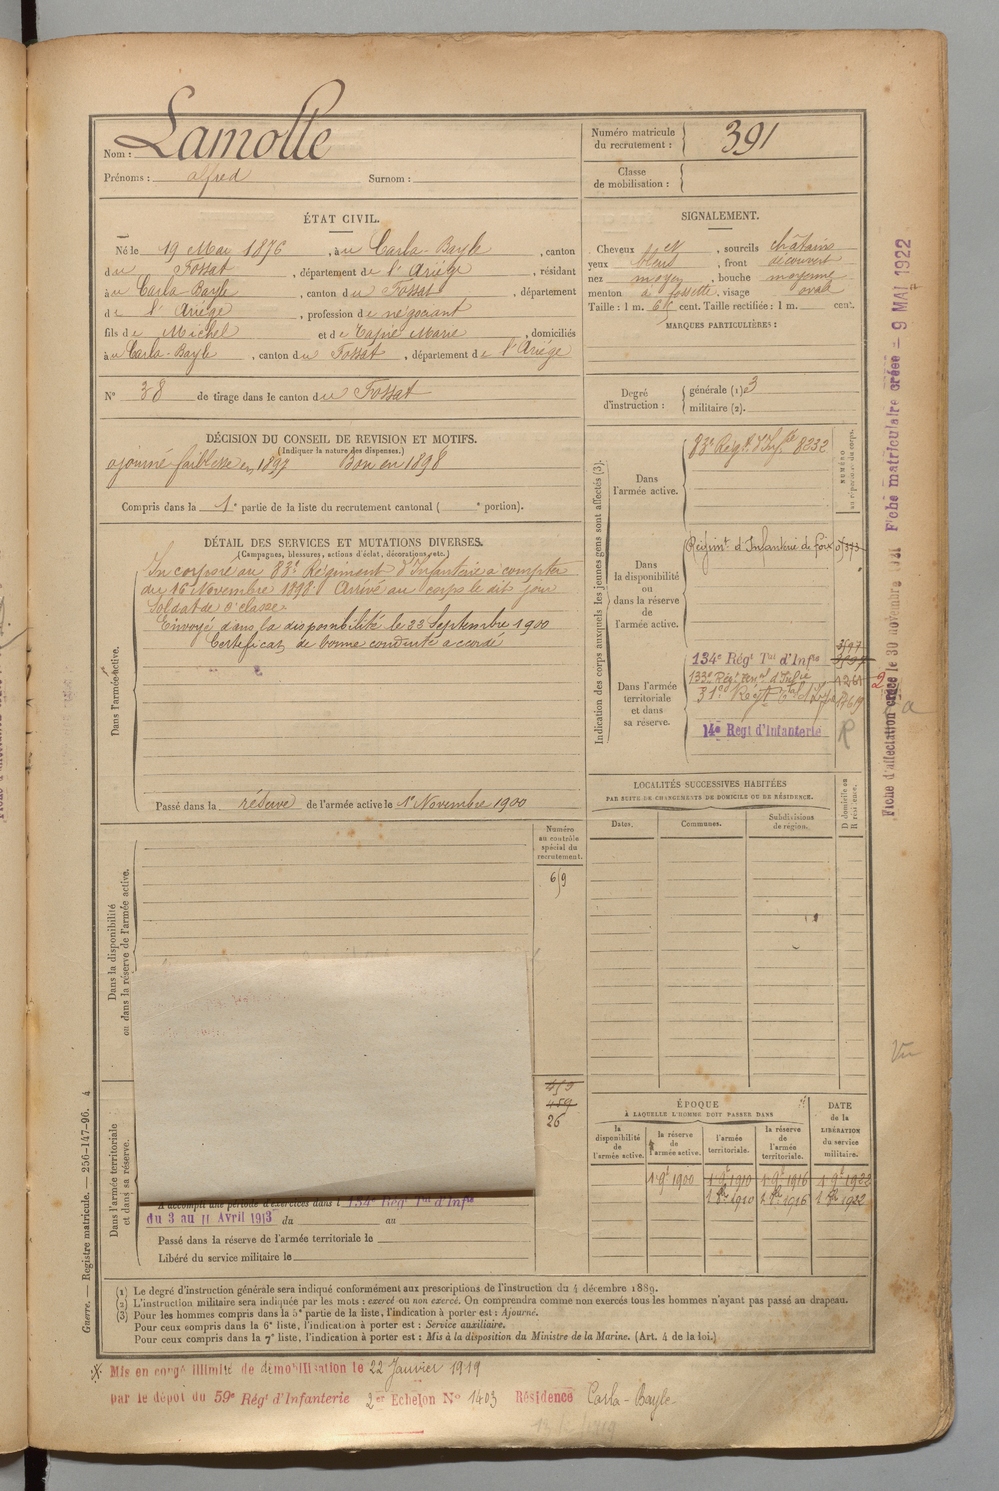 Nom : Lamotte
Prénoms : alfred Surnom :
Numéro matricule du recrutement : 391
Classe de mobilisation :
ÉTAT CIVIL.
Né le 19 Mai 1876, à u Carla-Bayle, canton
du Fossat, département de l'Ariège, résidant
à u Carla-Bayle, canton du Fossat, département
de l'Ariège, profession de négociant
fils de Michel et de Marie, domiciliés
à u Carla-Bayle, canton du Fossat, département de l'Ariège
N° 38 de tirage dans le canton du Fossat
SIGNALEMENT.
Cheveux et, sourcils châtains
yeux bleus, front découvert
nez moyen, bouche moyenne
menton à fossette, visage ovale
Taille : 1 m. cent. Taille rectifiée : 1 m. cent.
MARQUES PARTICULIÈRES :
Degré d'instruction : générale (1) 3
militaire (2).
DÉCISION DU CONSEIL DE REVISION ET MOTIFS.
(Indiquer la nature des dispenses.)
ajourné faiblesse en 1897 Bon en 1898
Compris dans la 1e partie de la liste du recrutement cantonal ( e portion).
DÉTAIL DES SERVICES ET MUTATIONS DIVERSES.
(Campagnes, blessures, actions d'éclat, décorations, etc.)
Dans l'armée active.
Incorporé au 83e Régiment d'Infanterie à compter
du 16 Novembre 1898 Arrivé au corps le dit jour
Soldat de 2e classe
Envoyé dans la disponibilité le 22 Septembre 1900
Certificat de bonne conduite accordé
Passé dans la réserve de l'armée active le 1er Novembre 1900
Indication des corps auxquels les jeunes gens sont affectés (3).
NUMÉRO au répertoire du corps.
Dans l'armée active.
83e Régt d'Inf 8232
Dans la disponibilité ou dans la réserve de l'armée active.
Régimt d'Infanterie de foix
Dans l'armée territoriale et dans sa réserve.
134e Régt Tal d'Infie
133e Régt
14e Régt d'Infanterie
R
LOCALITÉS SUCCESSIVES HABITÉES
PAR SUITE DE CHANGEMENTS DE DOMICILE OU DE RÉSIDENCE.
Dates. Communes. Subdivisions de région. D domicile ou R résidence.
Dans la disponibilité ou dans la réserve de l'armée active.
Numéro au contrôle spécial du recrutement.
619
459
26
Dans l'armée territoriale et dans sa réserve.
A accompli une période d'exercices dans l 134e Régt Tal d'Infie
du 3 au 11 Avril 1913 du au
Passé dans la réserve de l'armée territoriale le
Libéré du service militaire le
ÉPOQUE
À LAQUELLE L'HOMME DOIT PASSER DANS
la disponibilité de l'armée active.
la réserve de l'armée active.
l'armée territoriale.
la réserve de l'armée territoriale.
DATE de la LIBÉRATION du service militaire.
1 9e 1900 1 9e 1910 1 9e 1916 1 9e 1922
1910 1916 1922
Guerre. — Registre matricule. — 256-147-96. 4
(1) Le degré d'instruction générale sera indiqué conformément aux prescriptions de l'instruction du 4 décembre 1889.
(2) L'instruction militaire sera indiquée par les mots : exercé ou non exercé. On comprendra comme non exercés tous les hommes n'ayant pas passé au drapeau.
(3) Pour les hommes compris dans la 5e partie de la liste, l'indication à porter est : Ajourné.
Pour ceux compris dans la 6e liste, l'indication à porter est : Service auxiliaire.
Pour ceux compris dans la 7e liste, l'indication à porter est : Mis à la disposition du Ministre de la Marine. (Art. 4 de la loi.)
Mis en congé illimité de démobilisation le 22 Janvier 1919
par le dépôt du 59e Régt d'Infanterie 2e Echelon N° 1403 Résidence Carla-Bayle
Fiche d'affectation créée le 30 novembre 1921 Fiche matriculaire créée - 9 MAI 1922
Vu